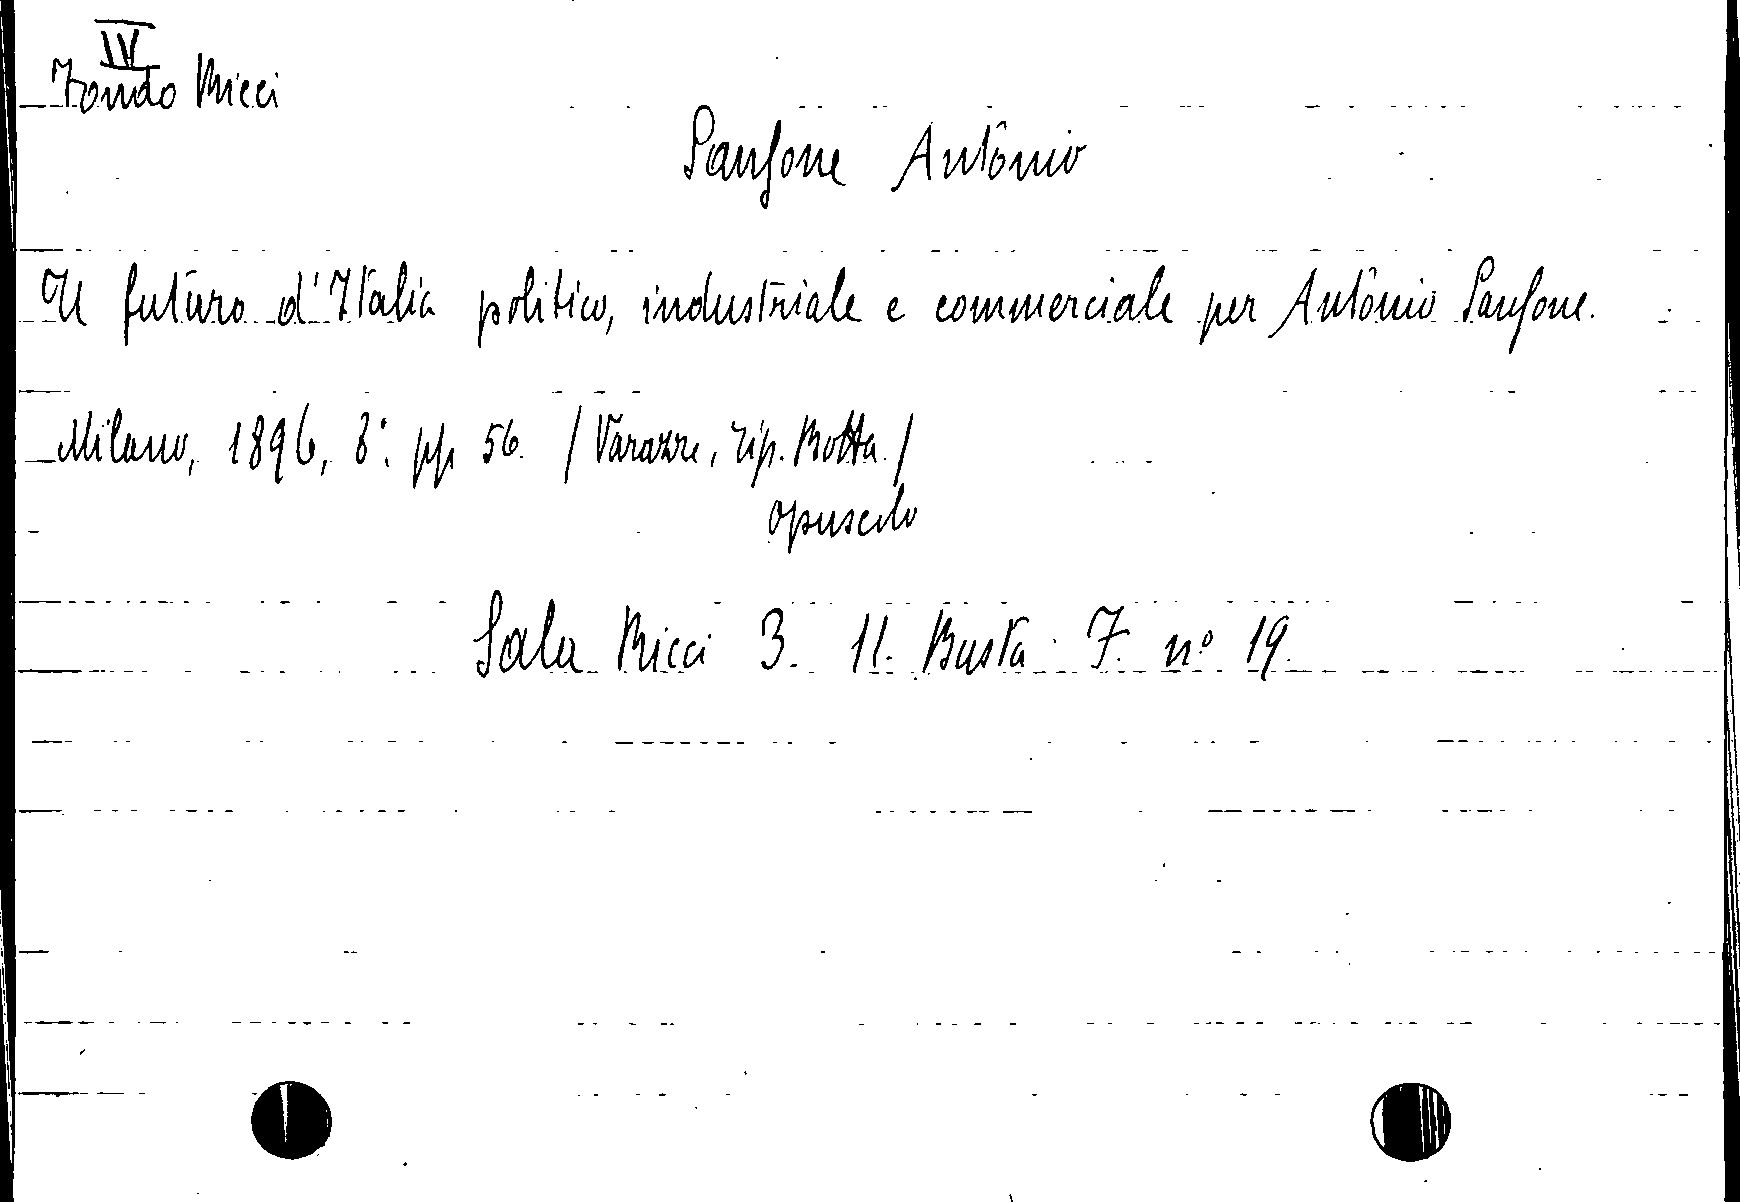 IV
Fondo Ricci
Sanfone Antonio
Il futuro d'Italia politico, industriale e commerciale per Antonio Sanfone.
Milano, 1896, 8°. pp. 56. / Varazze, Tip. Botta. /
opuscolo
Sala Ricci 3. 11. Busta 7. n° 19.